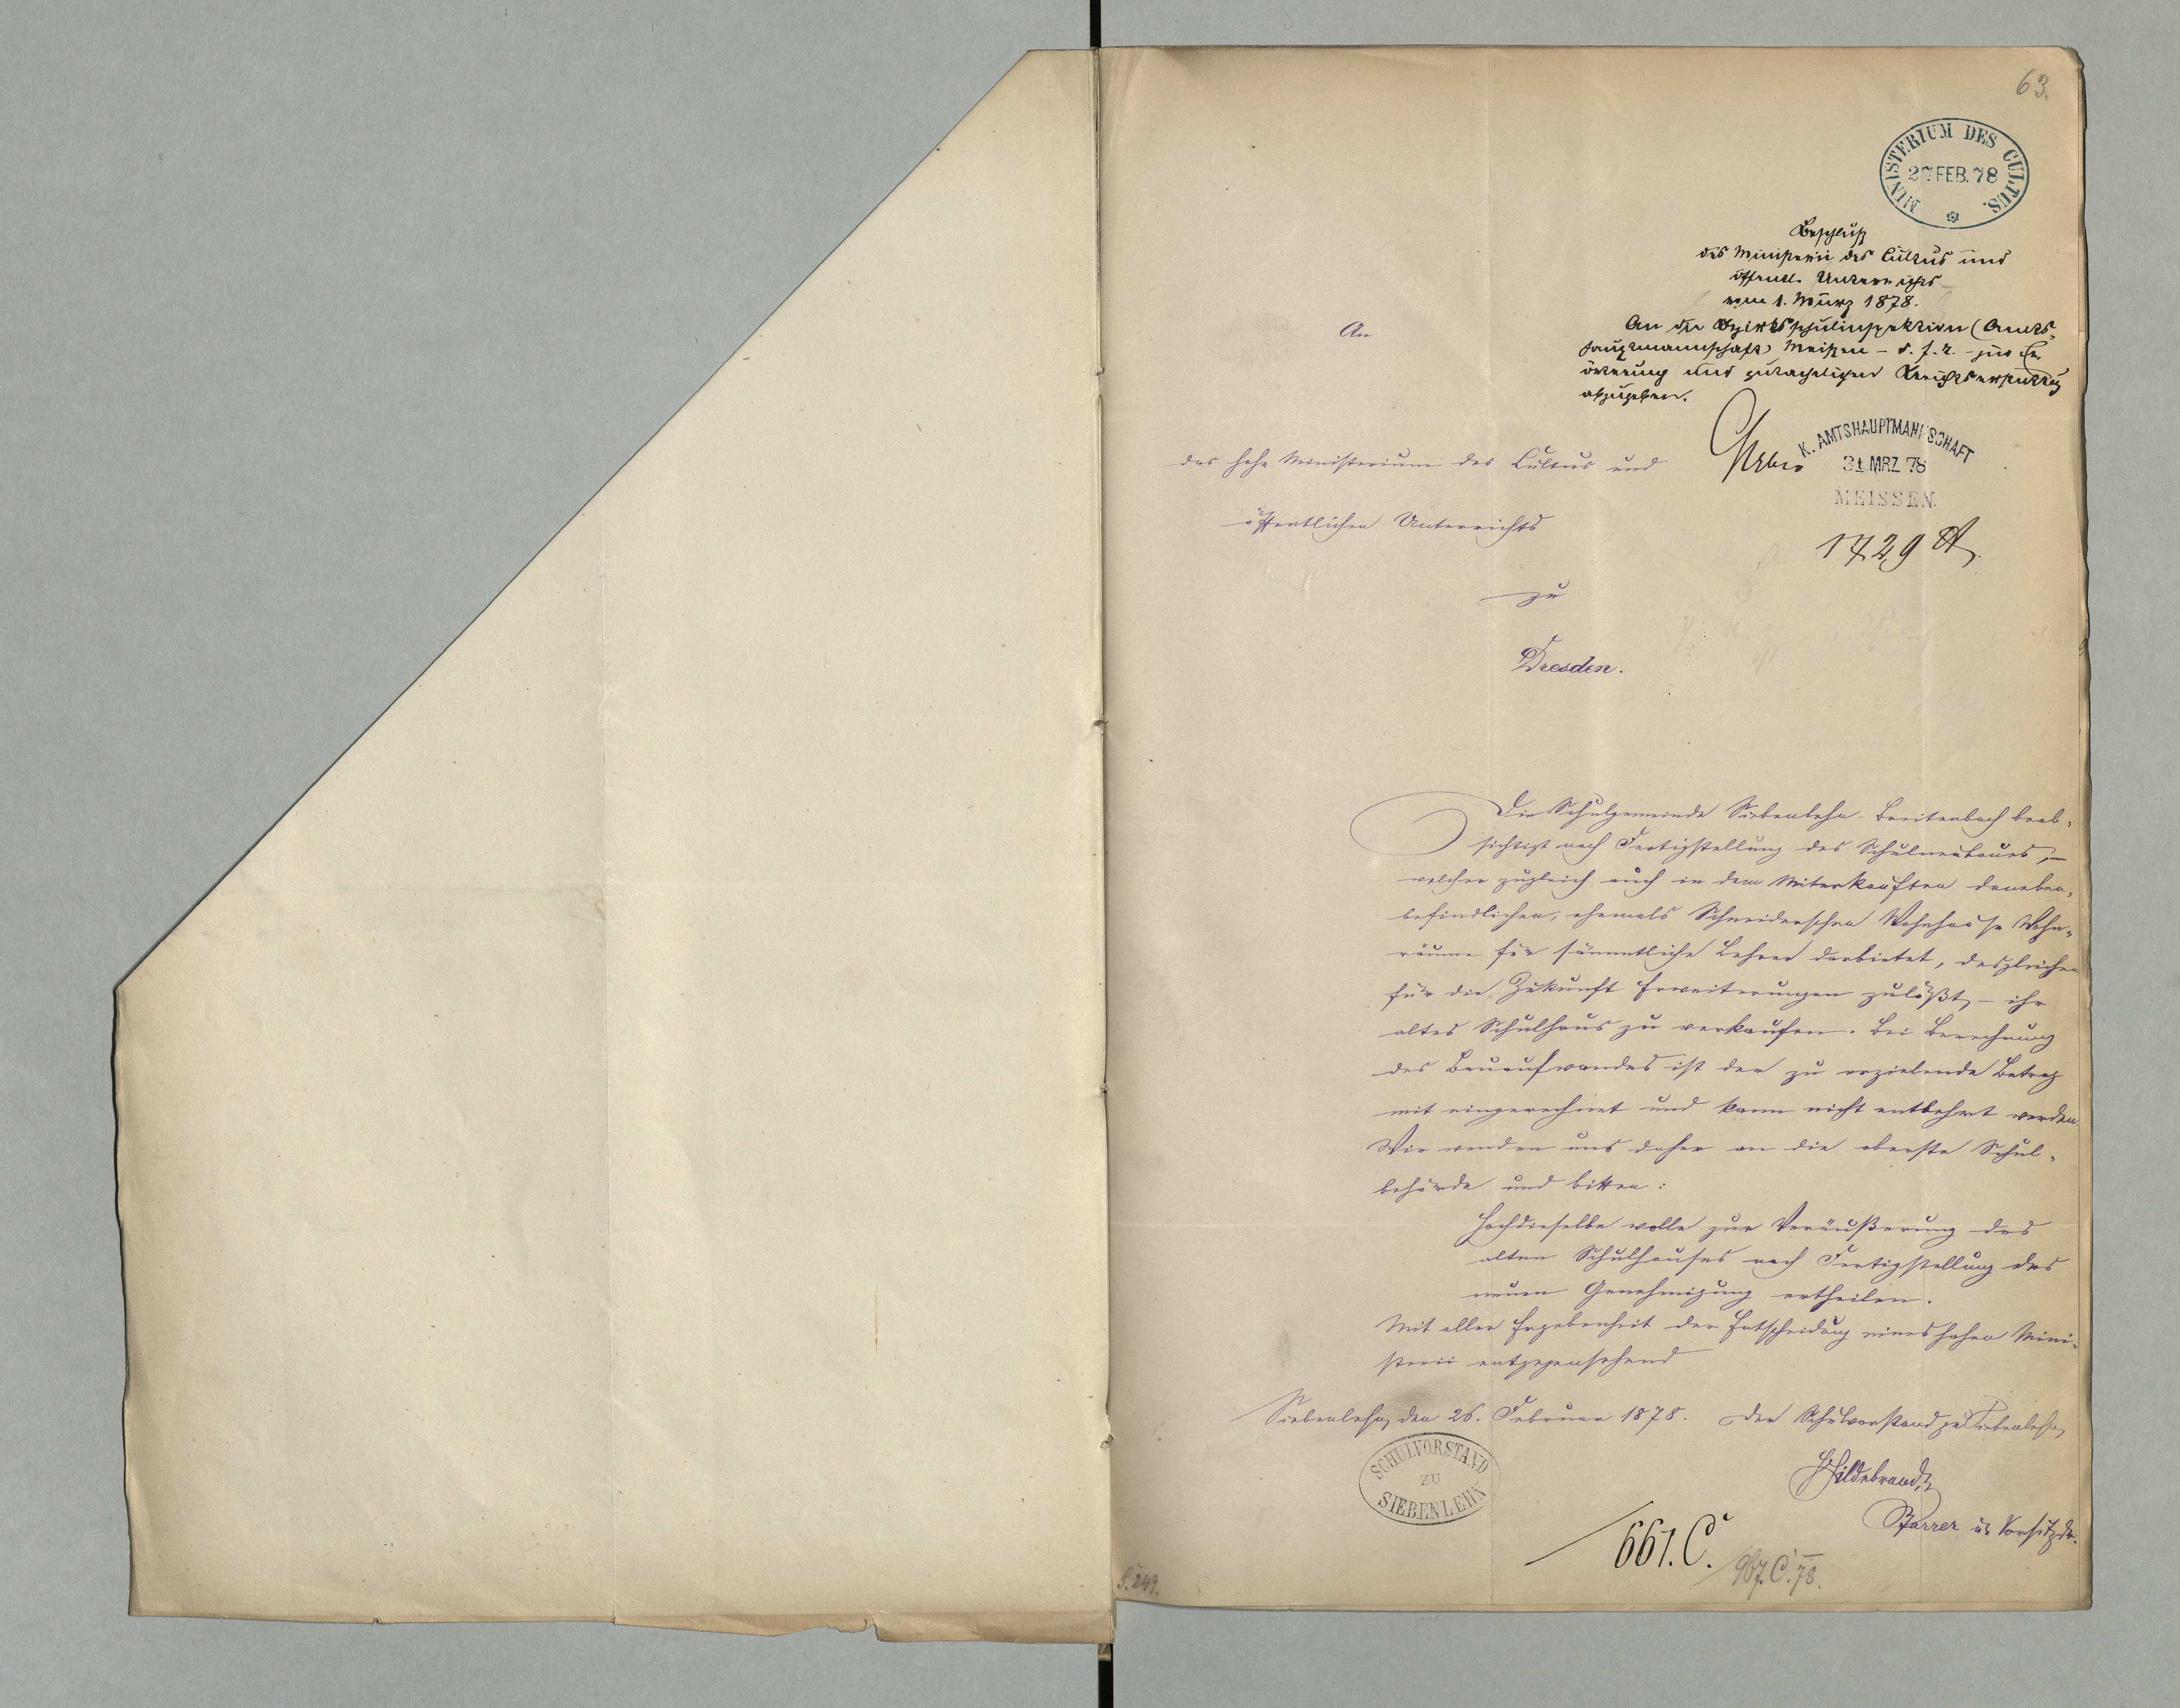 63.
MINISTERIUM DES CULTUS.
27 FEB. 78
Beschluß
des Ministerii des Cultus und
öffentl. Unterrichts
vom 1. März 1878.
An die Bezirksschulinspektion (Amts-
hauptmannschaft) Meißen – s. f. r. – zur Er-
örterung und gutachtlichen Berichtserstattung
abzugeben.
K. AMTSHAUPTMANNSCHAFT
31 MRZ 78
MEISSEN.
1729 A.
An
das hohe Ministerium des Cultus und
öffentlichen Unterrichts
zu
Dresden.
Die Schulgemeinde Siebenlehn-Breitenbach beab-
sichtigt nach Fertigstellung des Schulneubaues, –
welcher zugleich auch in dem miterkauften daneben-
befindlichen, ehemals Schneiderschen Wohnhause Wohn-
räume für sämmtliche Lehrer darbietet, desgleichen
für die Zukunft Erweiterungen zuläßt, – ihr
altes Schulhaus zu verkaufen. Bei Berechnung
des Bauaufwandes ist der zu erzielende Betrag
mit eingerechnet und kann nicht entbehrt werden.
Wir wenden uns daher an die oberste Schul-
behörde und bitten:
Hochdieselbe wolle zur Veräußerung des
alten Schulhauses nach Fertigstellung des
neuen Genehmigung ertheilen.
Mit aller Ergebenheit der Entscheidung eines hohen Mini-
sterii entgegensehend
Siebenlehn, den 26. Februar 1878. Der Schulvorstand zu Siebenlehn,
SCHULVORSTAND
ZU
SIEBENLEHN
Hildebrandt,
Pfarrer u. Vorsitzdr.
661. C.
967. C. 78.
S. 249.